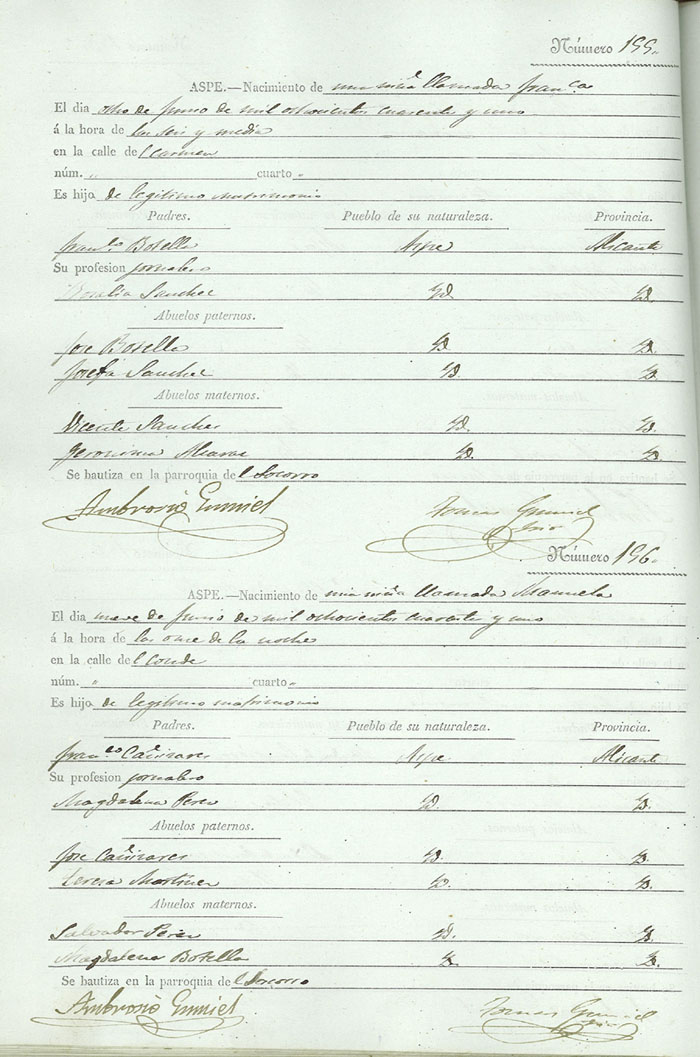 Número 155.
ASPE.—Nacimiento de una niña llamada Fran.ca
El dia ocho de Junio de mil ochocientos cuarenta y uno
á la hora de las seis y media
en la calle del Carmen
núm. " cuarto "
Es hijo de legitimo matrimonio
Padres. Pueblo de su naturaleza. Provincia.
Fran.co Botella Aspe Alicante
Su profesion jornalero
Rosalia Sanchez Yd. Yd.
Abuelos paternos.
Jose Botella Yd. Yd.
Josefa Sanchez Yd. Yd.
Abuelos maternos.
Vicente Sanchez Yd. Yd.
Geronima Yd. Yd.
Se bautiza en la parroquia del Socorro
Ambrosio Tomas
Número 156.
ASPE.—Nacimiento de una niña llamada Manuela
El dia nueve de Junio de mil ochocientos cuarenta y uno
á la hora de las once de la noche
en la calle del Conde
núm. " cuarto "
Es hijo de legitimo matrimonio
Padres. Pueblo de su naturaleza. Provincia.
Fran.co Cañizares Aspe Alicante
Su profesion jornalero
Magdalena Perez Yd. Yd.
Abuelos paternos.
Jose Cañizares Yd. Yd.
Teresa Martinez Yd. Yd.
Abuelos maternos.
Salvador Perez Yd. Yd.
Magdalena Botella Yd. Yd.
Se bautiza en la parroquia del Socorro
Ambrosio Tomas